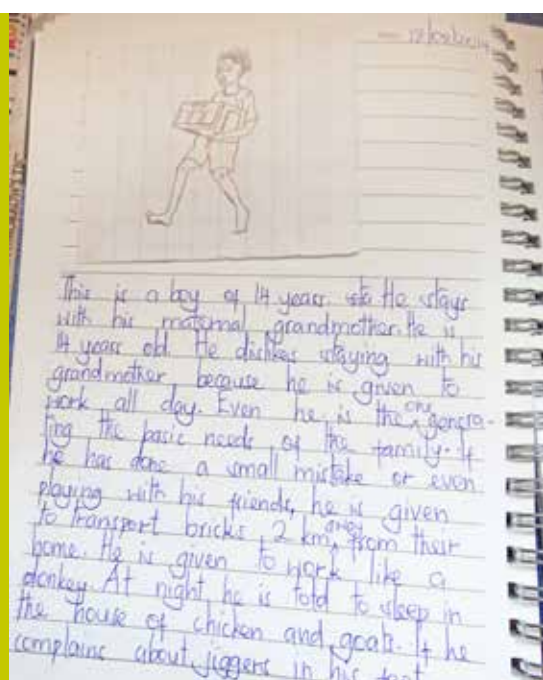 This is a boy of 14 years. He stays
with his maternal grandmother. He is
14 years old. He dislikes staying with his
grandmother because he is given to
work all day. Even he is the one genera-
ting the basic needs of the family. If
he has done a small mistake or even
playing with his friends, he is given
to transport bricks 2 km away from their
home. He is given to work like a
donkey. At night he is told to sleep in
the house of chicken and goats. If he
complains about jiggers in his feet